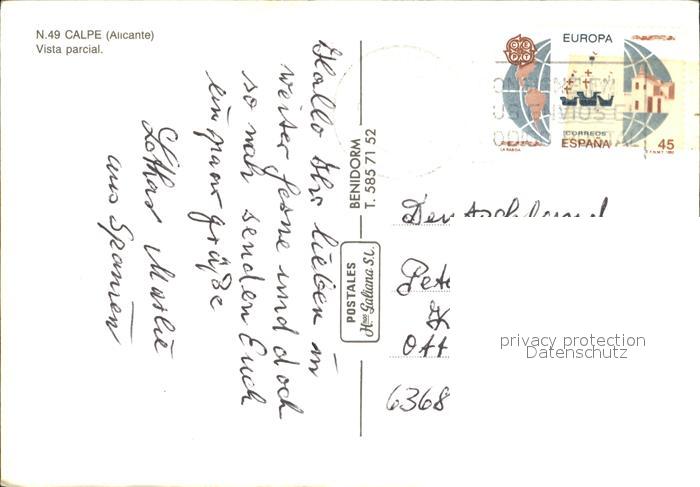 N.49 CALPE (Alicante)
Vista parcial.
Hallo Ihr lieben in
weiter ferne und doch
so nah senden Euch
ein paar grüße
Lothar Marlie
aus Spanien
BENIDORM
T. 585 71 52
POSTALES
Hnos Galiana S.L.
EUROPA
CEPT
CORREOS
ESPAÑA
45
LA RABIDA
Deutschland
Pete
Ott
6368
privacy protection
Datenschutz